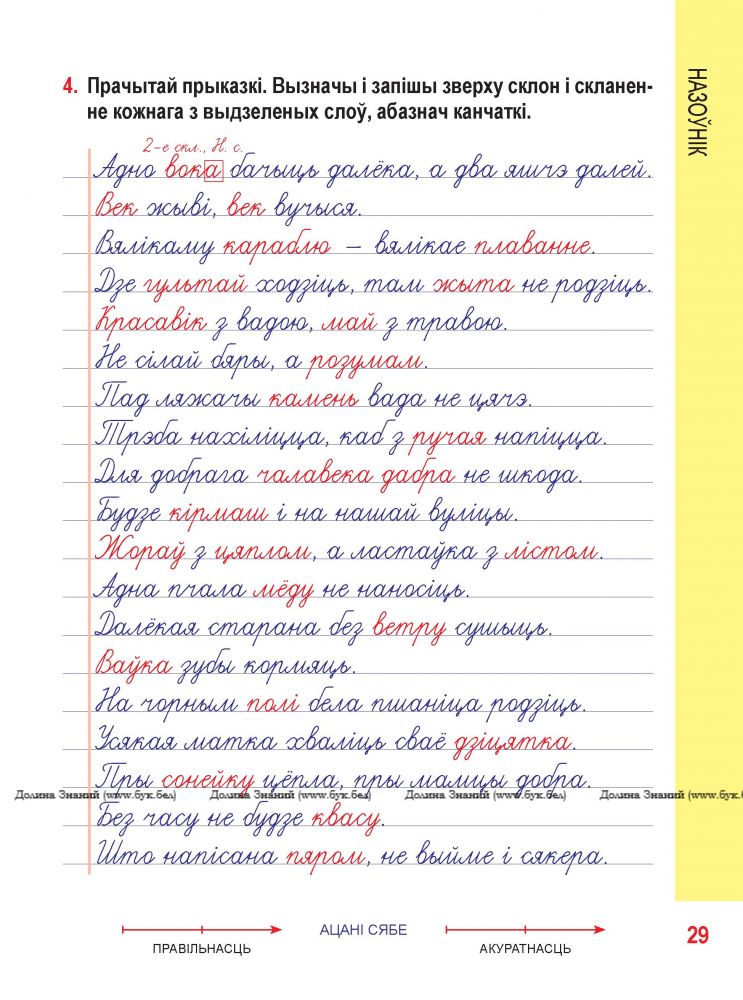 НАЗОЎНІК
4. Прачытай прыказкі. Вызначы і запішы зверху склон і скланен-
не кожнага з выдзеленых слоў, абазнач канчаткі.
2-е скл., Н. с.
Адно вока бачыць далёка, а два яшчэ далей.
Век жыві, век вучыся.
Вялікаму караблю – вялікае плаванне.
Дзе гультай ходзіць, там жыта не родзіць.
Красавік з вадою, май з травою.
Не сілай бяры, а розумам.
Пад ляжачы камень вада не цячэ.
Трэба нахіліцца, каб з ручая напіцца.
Для добрага чалавека дабра не шкода.
Будзе кірмаш і на нашай вуліцы.
Жораў з цяплом, а ластаўка з лістом.
Адна пчала мёду не наносіць.
Далёкая старана без ветру сушыць.
Ваўка зубы кормяць.
На чорным полі бела пшаніца родзіць.
Усякая матка хваліць сваё дзіцятка.
Пры сонейку цёпла, пры мамцы добра.
Долина Знаний (www.бук.бел) Долина Знаний (www.бук.бел) Долина Знаний (www.бук.бел) Долина Знаний (www.бук.бе
Без часу не будзе квасу.
Што напісана пяром, не выйме і сякера.
ПРАВІЛЬНАСЦЬ АЦАНІ СЯБЕ АКУРАТНАСЦЬ
29